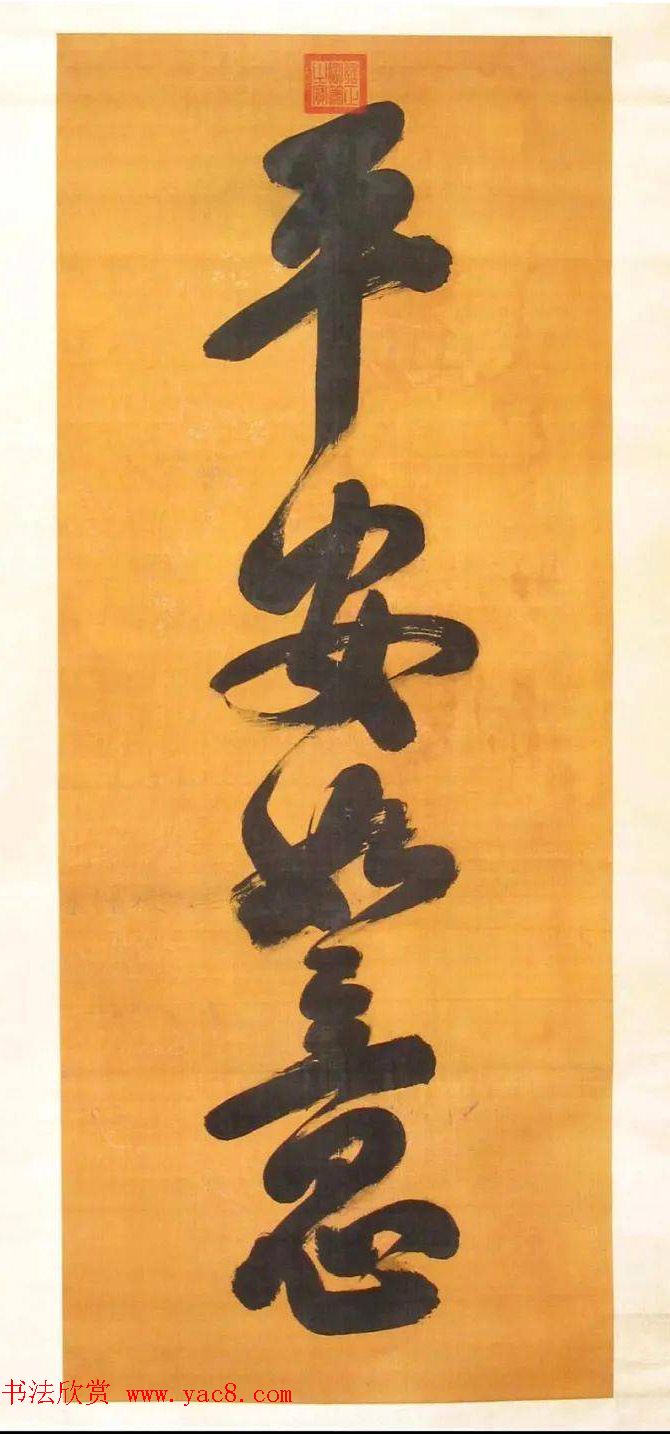 平安如意
书法欣赏 www.yac8.com